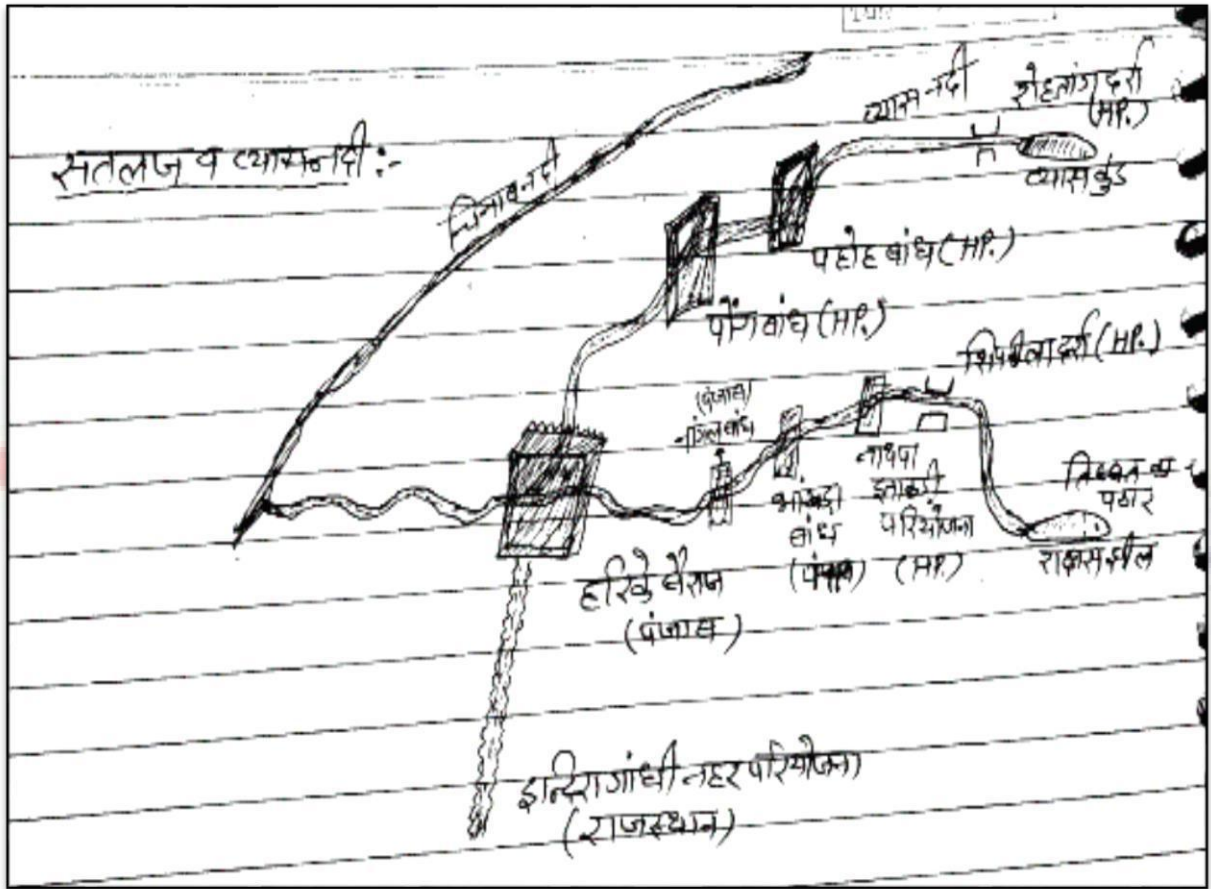 सतलज व व्यास नदी :-
चिनाब नदी
व्यास नदी
रोहतांग दर्रा
(HP.)
व्यास कुंड
पडोह बांध (HP.)
पोंग बांध (HP.)
शिपकीला दर्रा (HP.)
(पंजाब)
नांगल बांध
भांखडा
बांध
(पंजाब)
नाथपा
झाकडी
परियोजना
(HP.)
तिब्बत का
पठार
राक्षस झील
हरिके बैराज
(पंजाब)
इन्दिरा गांधी नहर परियोजना
(राजस्थान)